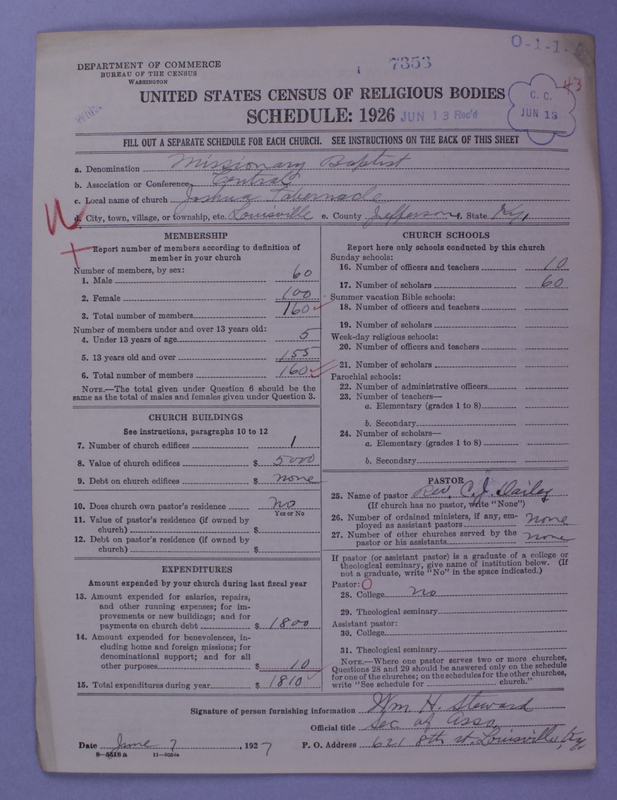 DEPARTMENT OF COMMERCE
BUREAU OF THE CENSUS
WASHINGTON
7353
O-1-1-
43
UNITED STATES CENSUS OF RELIGIOUS BODIES
SCHEDULE: 1926 JUN 13 Rec'd
C. C.
JUN 13
FILL OUT A SEPARATE SCHEDULE FOR EACH CHURCH. SEE INSTRUCTIONS ON THE BACK OF THIS SHEET
a. Denomination Missionary Baptist
b. Association or Conference Central
c. Local name of church Joshua Tabernacle
d. City, town, village, or township, etc. Louisville e. County Jefferson f. State Ky.
MEMBERSHIP
Report number of members according to definition of
member in your church
Number of members, by sex:
1. Male 60
2. Female 100
3. Total number of members 160
Number of members under and over 13 years old:
4. Under 13 years of age 5
5. 13 years old and over 155
6. Total number of members 160
NOTE.—The total given under Question 6 should be the
same as the total of males and females given under Question 3.
CHURCH BUILDINGS
See instructions, paragraphs 10 to 12
7. Number of church edifices 1
8. Value of church edifices $ 5000
9. Debt on church edifices $ none
10. Does church own pastor's residence no
Yes or No
11. Value of pastor's residence (if owned by
church) $
12. Debt on pastor's residence (if owned by
church) $
EXPENDITURES
Amount expended by your church during last fiscal year
13. Amount expended for salaries, repairs,
and other running expenses; for im-
provements or new buildings; and for
payments on church debt $ 1800
14. Amount expended for benevolences, in-
cluding home and foreign missions; for
denominational support; and for all
other purposes $ 10
15. Total expenditures during year $ 1810
CHURCH SCHOOLS
Report here only schools conducted by this church
Sunday schools:
16. Number of officers and teachers 10
17. Number of scholars 60
Summer vacation Bible schools:
18. Number of officers and teachers
19. Number of scholars
Week-day religious schools:
20. Number of officers and teachers
21. Number of scholars
Parochial schools:
22. Number of administrative officers
23. Number of teachers—
a. Elementary (grades 1 to 8)
b. Secondary
24. Number of scholars—
a. Elementary (grades 1 to 8)
b. Secondary
PASTOR
25. Name of pastor Rev. C. J. Dailey
(If church has no pastor, write "None")
26. Number of ordained ministers, if any, em-
ployed as assistant pastors none
27. Number of other churches served by the
pastor or his assistants none
If pastor (or assistant pastor) is a graduate of a college or
theological seminary, give name of institution below. (If
not a graduate, write "No" in the space indicated.)
Pastor:
28. College no
29. Theological seminary
Assistant pastor:
30. College
31. Theological seminary
NOTE.—Where one pastor serves two or more churches,
Questions 28 and 29 should be answered only on the schedule
for one of the churches; on the schedules for the other churches,
write "See schedule for church."
Signature of person furnishing information Wm H. Steward
Official title Sec of Assn
Date June 7, 1927 P. O. Address 621 8th st. Louisville, Ky.
8—5518a 11—9034a